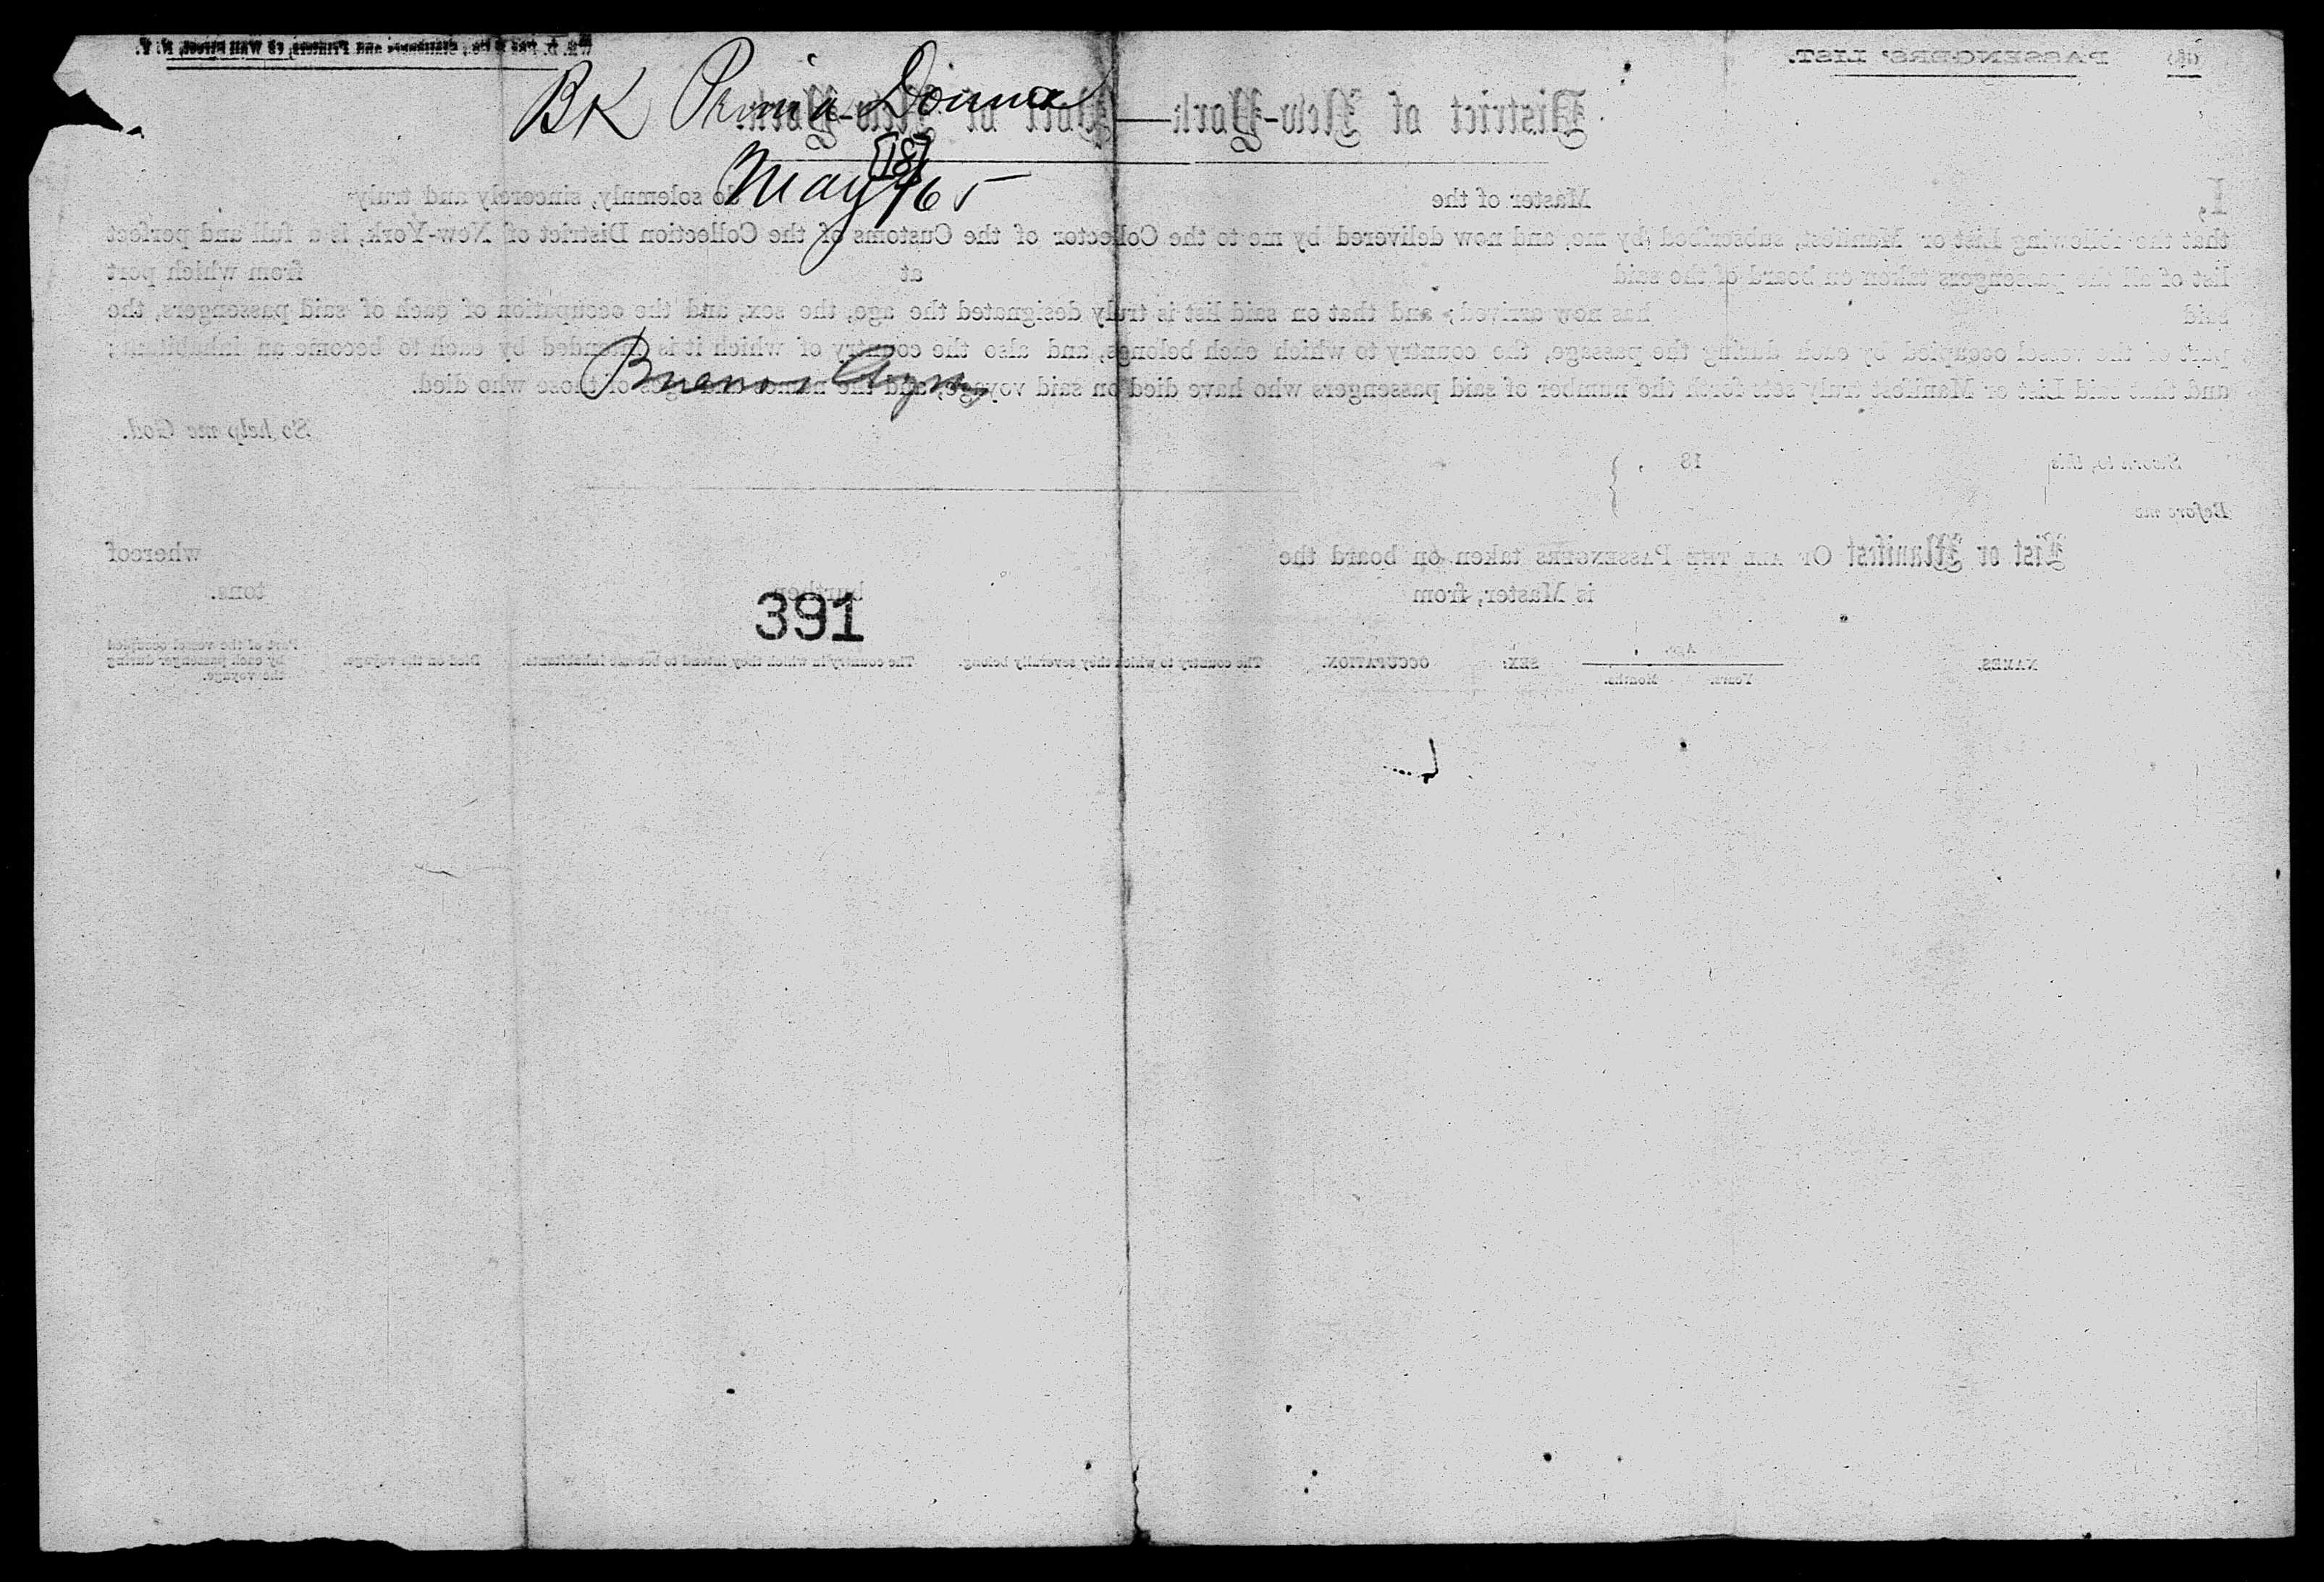 BK Prima Donna
[18]
May 16 5
Buenos Ayres
391
PASSENGERS' LIST.
District of New-York—Port of New-York.
I, Master of the do solemnly, sincerely and truly
that the following List or Manifest, subscribed by me, and now delivered by me to the Collector of the Customs of the Collection District of New-York, is a full and perfect
list of all the passengers taken on board of the said at from which port
said has now arrived; and that on said list is truly designated the age, the sex, and the occupation of each of said passengers, the
part of the vessel occupied by each during the passage, the country to which each belongs, and also the country of which it is intended by each to become an inhabitant;
and that said List or Manifest truly sets forth the number of said passengers who have died on said voyage, and the names and ages of those who died.
So help me God.
Sworn to, this 18 ,
Before me
List or Manifest OF ALL THE PASSENGERS taken on board the whereof
is Master, from burthen tons.
NAMES. Age. Years. Months. SEX. OCCUPATION. The country to which they severally belong. The country in which they intend to become inhabitants. Died on the voyage. Part of the vessel occupied by each passenger during the voyage.